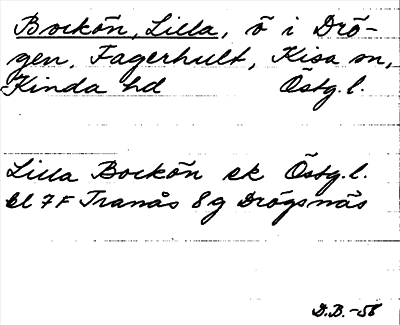 Bockön, Lilla, ö i Drö-
gen, Fagerhult, Kisa sn,
Kinda hd Östg.l.
Lilla Bockön ek Östg.l.
bl 7F Tranås 8g Drögsnäs
D.B.-56